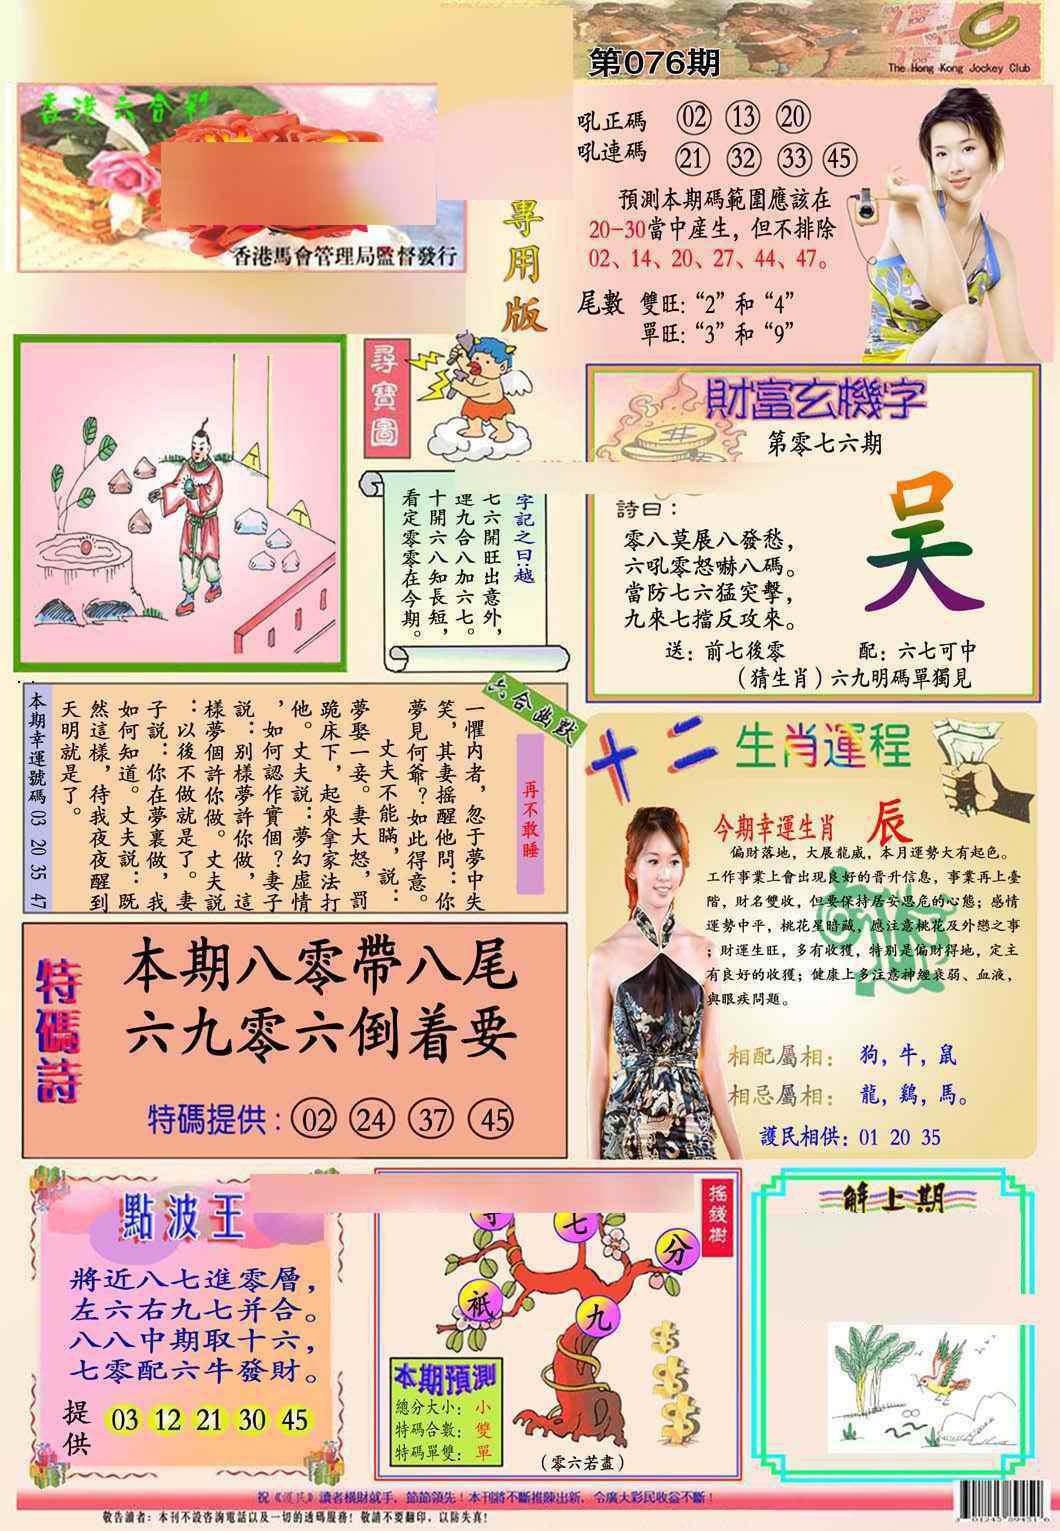 第076期
The Hong Kong Jockey Club
香港六合彩
香港馬會管理局監督發行
專用版
吼正碼 02 13 20
吼連碼 21 32 33 45
預測本期碼範圍應該在
20-30當中産生，但不排除
02、14、20、27、44、47。
尾數 雙旺:“2”和“4”
單旺:“3”和“9”
尋寶圖
字記之曰:越
七六開旺出意外，
連九合八加六七。
十開六八知長短，
看定零零在今期。
財富玄機字
第零七六期
詩曰：
零八莫展八發愁，
六吼零怒嚇八碼。
當防七六猛突擊，
九來七擋反攻來。
吴
送：前七後零 配：六七可中
（猜生肖）六九明碼單獨見
六合幽默
再不敢睡
一懼内者，忽于夢中失
笑，其妻摇醒他問：你
夢見何爺？如此得意。
丈夫不能瞞，説：
夢娶一妾。妻大怒，罰
跪床下，起來拿家法打
他。丈夫説：夢幻虚情
，如何認作實個？妻子
説：别樣夢許你做，這
樣夢個許你做。丈夫説
：以後不做就是了。妻
子説：你在夢裏做，我
如何知道。丈夫説：既
然這樣，待我夜夜醒到
天明就是了。
本期幸運號碼 03 20 35 47
十二生肖運程
今期幸運生肖 辰
偏財落地，大展龍威，本月運勢大有起色。
工作事業上會出現良好的晋升信息，事業再上臺
階，財名雙收，但要保持居安思危的心態；感情
運勢中平，桃花星暗藏，應注意桃花及外戀之事
；財運生旺，多有收獲，特别是偏財得地，定主
有良好的收獲；健康上多注意神經衰弱、血液，
與眼疾問題。
相配屬相： 狗，牛，鼠
相忌屬相： 龍，鷄，馬。
護民相供：01 20 35
特碼詩
本期八零帶八尾
六九零六倒着要
特碼提供：02 24 37 45
點波王
將近八七進零層，
左六右九七并合。
八八中期取十六，
七零配六牛發財。
提供 03 12 21 30 45
摇錢樹
七
分
祇
九
本期預測
總分大小：小
特碼合數：雙
特碼單雙：單
（零六若盡）
解上期
祝《護民》讀者橫財就手，節節領先！本刊將不斷推陳出新，令廣大彩民收益不斷！
敬告讀者：本刊不設咨詢電話以及一切的透碼服務！敬請不要翻印，以防失真！